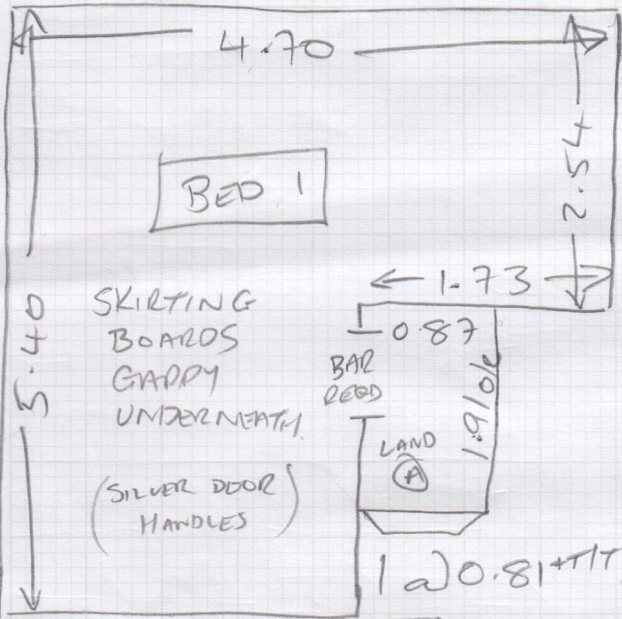 4.70
2.54
BED 1
1.73
5.40
SKIRTING
BOARDS
GAPPY
UNDERNEATH.
(SILVER DOOR
HANDLES)
0.87
BAR
REQD
LAND
A
1.9
1 @ 0.81 +T/T